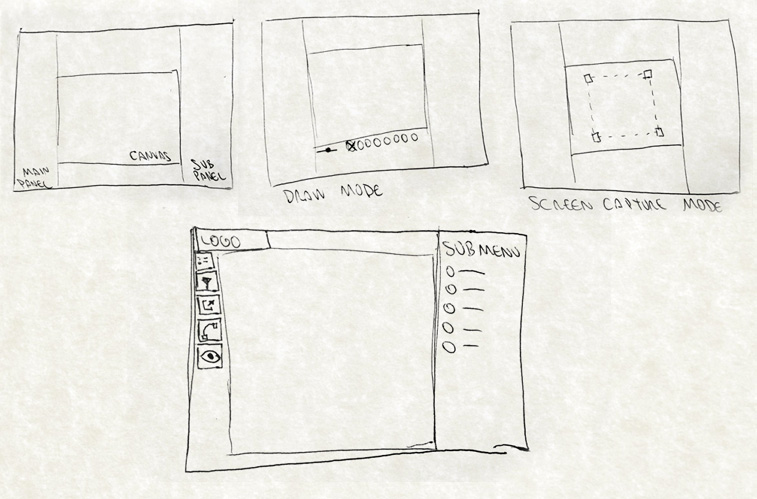 MAIN
PANEL
CANVAS
SUB
PANEL
DRAW MODE
SCREEN CAPTURE MODE
LOGO
SUB MENU